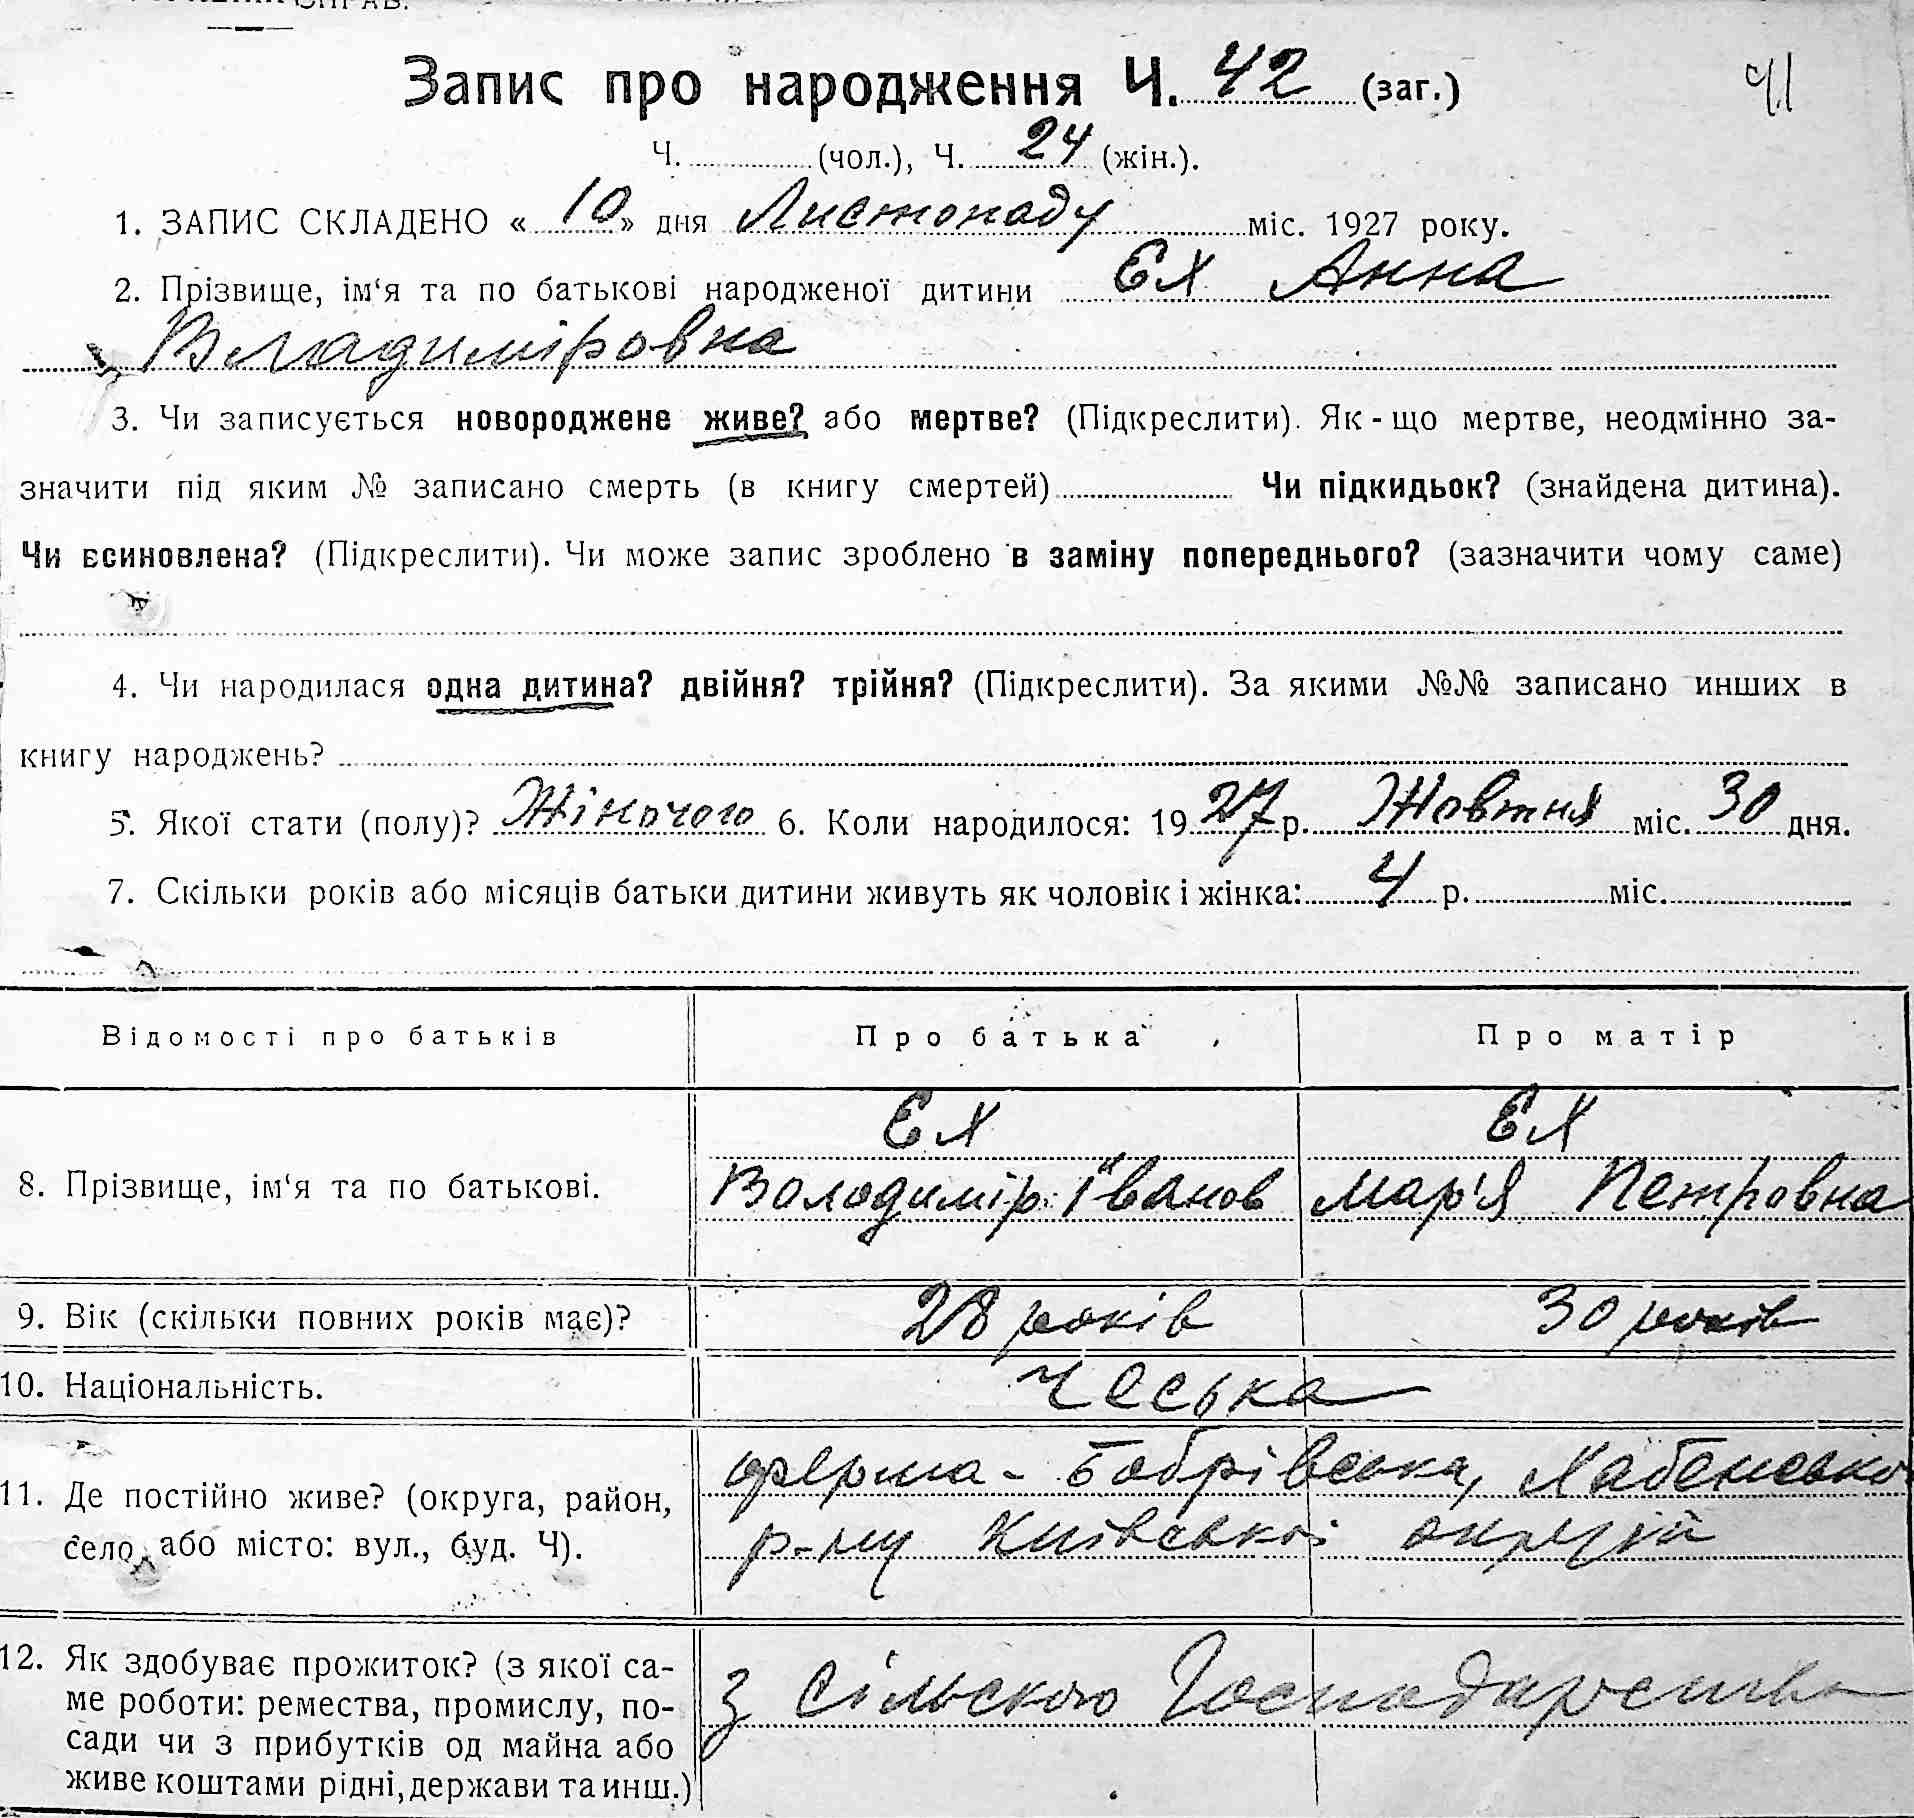 Запис про народження Ч. 42 (заг.) 41
Ч. (чол.), Ч. 24 (жін.).
1. ЗАПИС СКЛАДЕНО « 10 » дня Листопаду міс. 1927 року.
2. Прізвище, ім‘я та по батькові народженої дитини Єх Анна
Владиміровна
3. Чи записується новороджене живе? або мертве? (Підкреслити). Як-що мертве, неодмінно за-
значити під яким № записано смерть (в книгу смертей) Чи підкидьок? (знайдена дитина).
Чи всиновлена? (Підкреслити). Чи може запис зроблено в заміну попереднього? (зазначити чому саме)
4. Чи народилася одна дитина? двійня? трійня? (Підкреслити). За якими №№ записано инших в
книгу народжень?
5. Якої стати (полу)? Жіночого 6. Коли народилося: 1927 р. Жовтня міс. 30 дня.
7. Скільки років або місяців батьки дитини живуть як чоловік і жінка: 4 р. міс.
Відомості про батьків Про батька Про матір
8. Прізвище, ім‘я та по батькові.
Єх
Володимір Іванов
Єх
Мар'я Петровна
9. Вік (скільки повних років має)? 28 років 30 років
10. Національність. Чеська
11. Де постійно живе? (округа, район,
село, або місто: вул., буд. Ч).
ферма - Бобрівська, Хабенсько
р-ну Київської
12. Як здобуває прожиток? (з якої са-
ме роботи: ремества, промислу, по-
сади чи з прибутків од майна або
живе коштами рідні, держави та инш.)
з сільского господарства